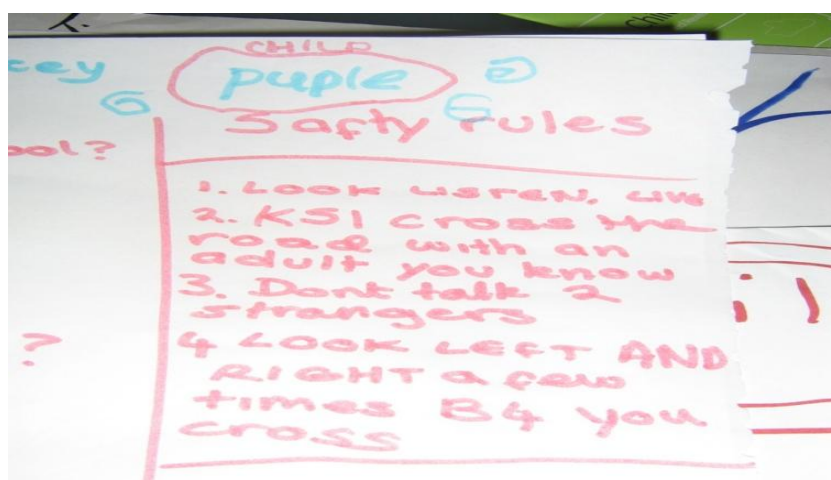 CHILD
puple
Safty rules
1. LOOK LISTEN, LIVE
2. KS1 cross the
road with an
adult you know
3. Dont talk 2
strangers
4 LOOK LEFT AND
RIGHT a few
times B4 you
cross
ool?
?